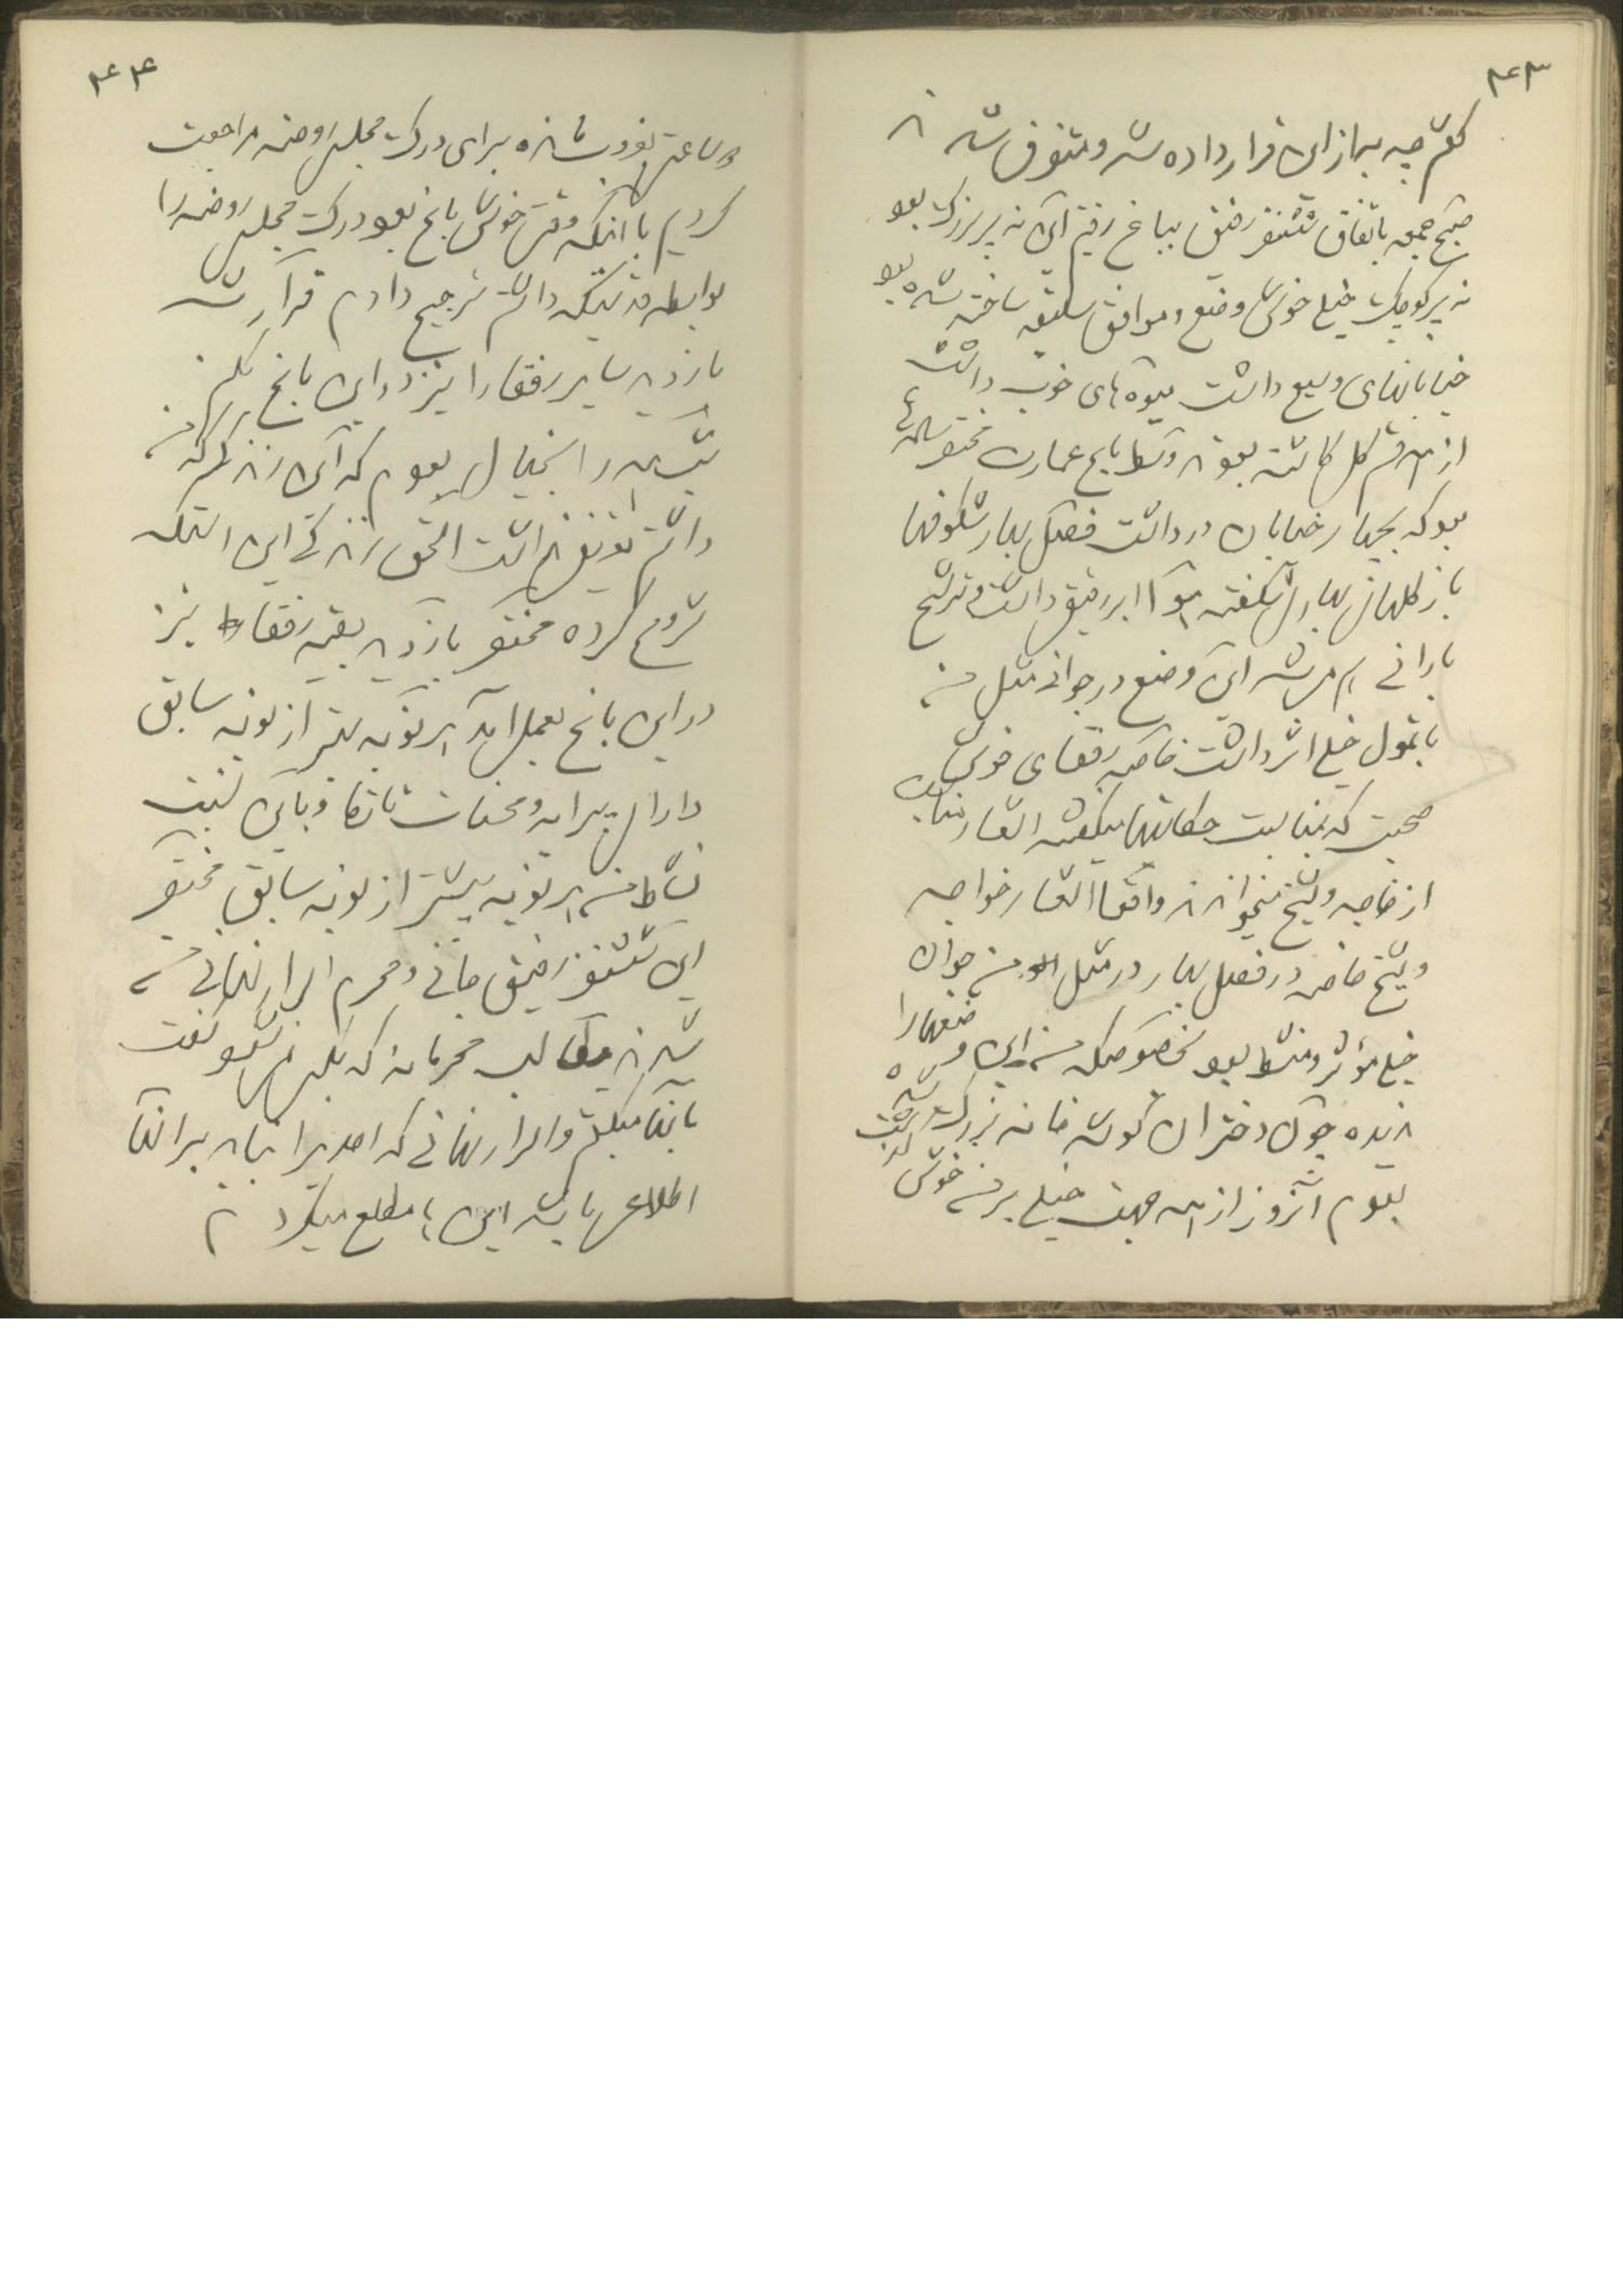 ۳۴۳
گفتم چه بهتر از این قرار داده شد و متفرق شدند
صبح جمعه باتفاق شش نفر رفیق بباغ رفتیم این نه پر بزرگ بود
نه پر کوچک خیلی خوش وضع و موافق سلیقه ساخته شده بود
خیابانهای وسیع داشت میوه های خوب داشت
از همه قسم گل کاشته بودند وسط باغ عمارت مختصر
بود که بچهار خیابان در داشت فصل بهار شکوفها
باز گلهای بهار شکفته هوا ابر رقیق داشت و ترشح
بارانی هم میشد این وضع در جوانی مثل من
با تمول خیلی اثر داشت خاصه رفقای خوش
صحبت که بمناسبت حکایتها میگفتند اشعار مناسب
از خواجه و شیخ میخواندند واقعا اشعار خواجه
و شیخ خاصه در فصل بهار در مثل من جوان
خیلی مؤثر و منشط بود بخصوص که من این وضعها را
ندیده چون دختران گوشه خانه بزرگ شده
بودم آنروز از همه جهت خیلی بر من خوش گذشت
۳۴۴
دو ساعت بغروب مانده برای درک مجلس روضه مراجعت
کردیم با آنکه وقت خوش باغ بود درک مجلس روضه را
بواسطه قد تیکه داشتم ترجیح دادم قرار شد
بازدید سایر رفقا را نیز در این باغ بکنم
شب همه را بخیال بودم که این
داشتم توفیق نداشت الحق زندگی این است که
شروع کرده مختصر بازدید بقیه رفقا نیز
در این باغ بعمل آمد هر نوبه بهتر از نوبه سابق
دارای پیرایه و محسنات تازه و باین نسبت
نشاط من هر نوبه بیشتر از نوبه سابق مختصر
این شش نفر رفیق جانی و محرم اسرار نهانی من
شدند مطالب محرمانه که بکس نمیشود گفت
بآنها میگفتم و اسرار نهانی که احدی را نباید بر آنها
اطلاعی باشد این‌ها مطلع میکردم